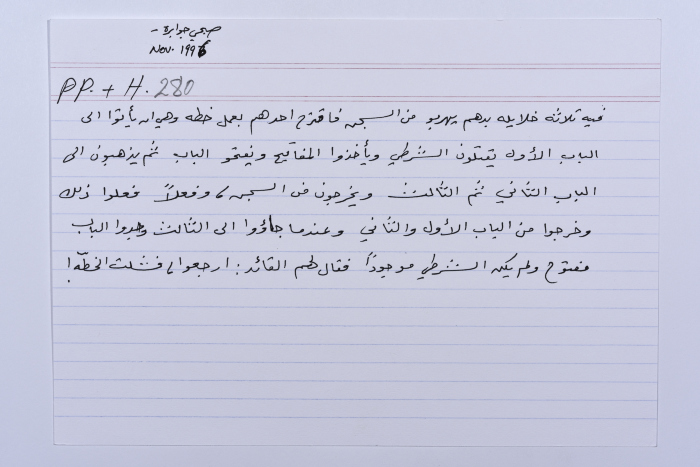 صبحي جوابرة -
Nov. 1996
PP. + H. 280
فيه ثلاثة خلايله بدهم يهربو من السجن فاقترح احدهم بعمل خطه وهي ان يأتوا الى
الباب الأول يقتلون الشرطي ويأخذوا المفاتيح ويفتحو الباب ثم يذهبون الى
الباب الثاني ثم الثالث ويخرجون من السجن، وفعلاً فعلوا ذلك
وخرجوا من الباب الأول والثاني وعندما جاؤوا الى الثالث وجدوا الباب
مفتوح ولم يكن الشرطي موجوداً فقال لهم القائد: ارجعوا، فشلت الخطّه!